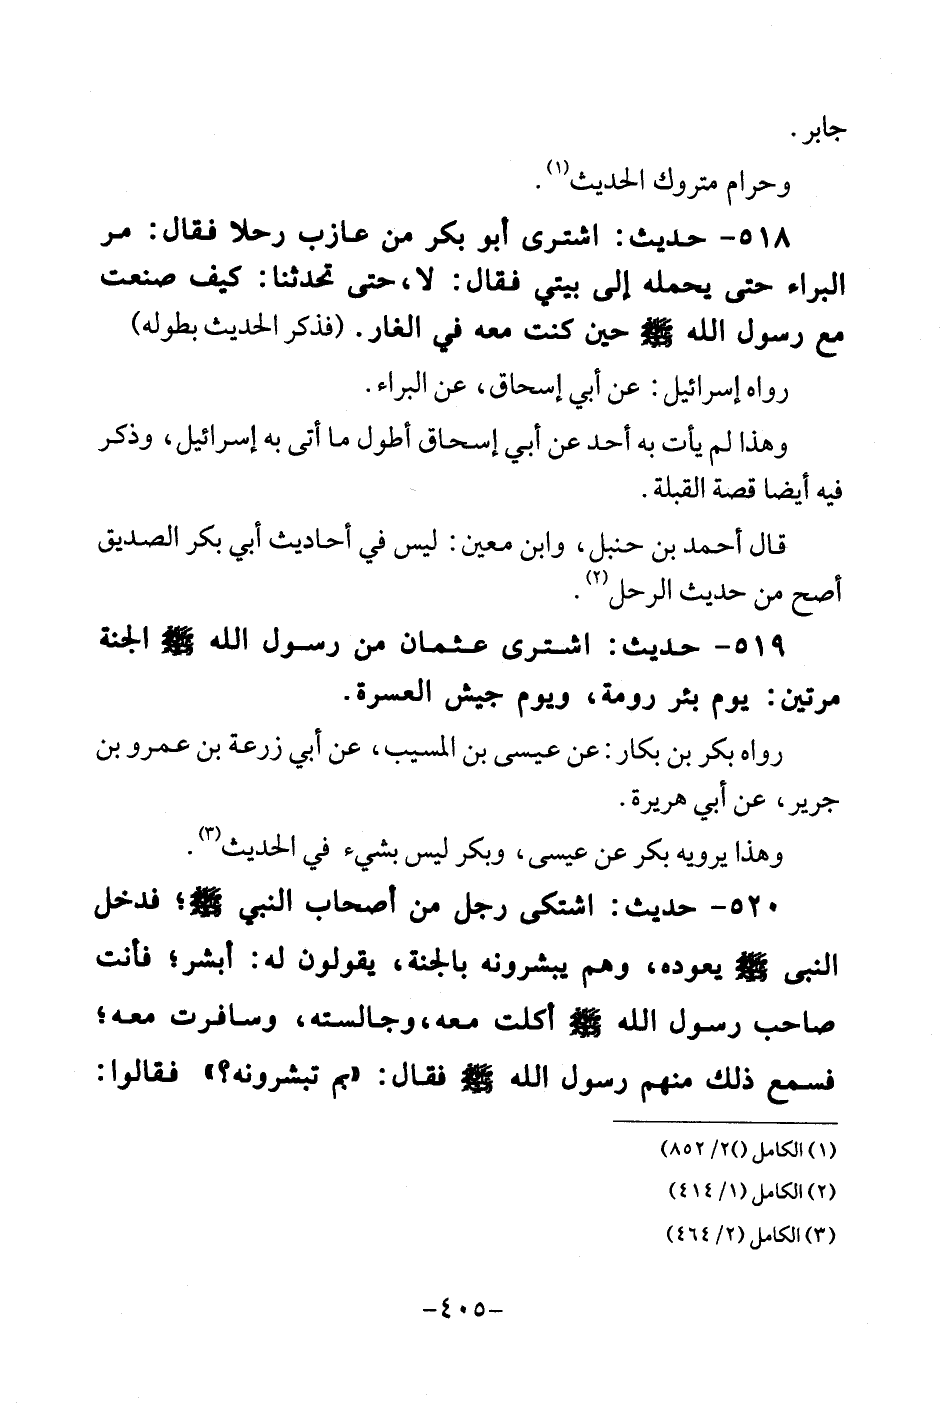 جابر .
وحرام متروك الحديث(١) .
٥١٨- حديث : اشترى أبو بكر من عازب رحلا فقال : مر
البراء حتى يحمله إلى بيتي فقال : لا ، حتى تحدثنا : كيف صنعت
مع رسول الله ﷺ حين كنت معه في الغار . (فذكر الحديث بطوله)
رواه إسرائيل : عن أبي إسحاق ، عن البراء .
وهذا لم يأت به أحد عن أبي إسحاق أطول ما أتى به إسرائيل ، وذكر
فيه أيضا قصة القبلة .
قال أحمد بن حنبل ، وابن معين : ليس في أحاديث أبي بكر الصديق
أصح من حديث الرحل(٢) .
٥١٩- حديث : اشترى عثمان من رسول الله ﷺ الجنة
مرتين : يوم بئر رومة ، ويوم جيش العسرة .
رواه بكر بن بكار : عن عيسى بن المسيب ، عن أبي زرعة بن عمرو بن
جرير ، عن أبي هريرة .
وهذا يرويه بكر عن عيسى ، وبكر ليس بشيء في الحديث(٣) .
٥٢٠- حديث : اشتكى رجل من أصحاب النبي ﷺ؛ فدخل
النبى ﷺ يعوده، وهم يبشرونه بالجنة، يقولون له: أبشر؛ فأنت
صاحب رسول الله ﷺ أكلت معه، وجالسته، وسافرت معه؛
فسمع ذلك منهم رسول الله ﷺ فقال: «بم تبشرونه؟» فقالوا:
(١) الكامل ()٢/ ٨٥٢)
(٢) الكامل (١/ ٤١٤)
(٣) الكامل (٢/ ٤٦٤)
-٤٠٥-